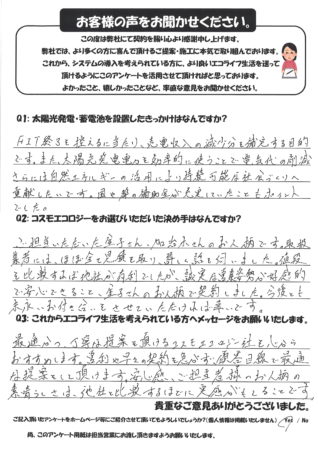 お客様の声をお聞かせください。
この度は弊社にてご契約を賜り心より感謝申し上げます。
弊社では、より多くの方に喜んで頂けるご提案・施工に本気で取り組んでおります。
これから、システムの導入を考えられている方に、より良いエコライフ生活を送って
頂けるようにこのアンケートを活用させて頂ければと思っております。
よかったこと、嬉しかったことなど、率直な意見をお聞かせください。
Q1: 太陽光発電・蓄電池を設置したきっかけはなんですか?
FIT終了を控えるに当たり、売電収入の減少分を補完する目的
です。また、太陽光発電電力を効率的に使うことで電気代の削減
さらには自然エネルギーの活用により持続可能な社会づくりへ
貢献したいです。国や県の補助金が充実していたこともポイント
でした。
Q2: コスモエコロジーをお選びいただいた決め手はなんですか?
ご担当いただいた金子さん、加治木さんのお人柄です。取扱
業者には、ほぼ全て見積を取り、詳しく話を伺いました。値段
を比較すれば他社が有利でしたが、誠実な営業姿勢が好感的
で安心できること、金子さんのお人柄で契約しました。今後とも
末永いお付き合いをさせていただければ幸いです。
Q3: これからエコライフ生活を考えられている方へメッセージをお願いいたします。
最適かつ、丁寧な提案を頂けるコスモエコロジー社を心から
おすすめします。喜利の子との契約を急がず、顧客目線で最適
な提案をして頂けます。安心感、ご担当者様のお人柄の
素晴らしさは、他社と比較するほどに実感がもてることです。
貴重なご意見ありがとうございました。
ご記入頂いたアンケートをホームページ等にご紹介させて頂いてもよろしいでしょうか?(個人情報は掲載いたしません) Yes / No
尚、このアンケート用紙は担当営業にお渡し頂きますようお願いいたします。